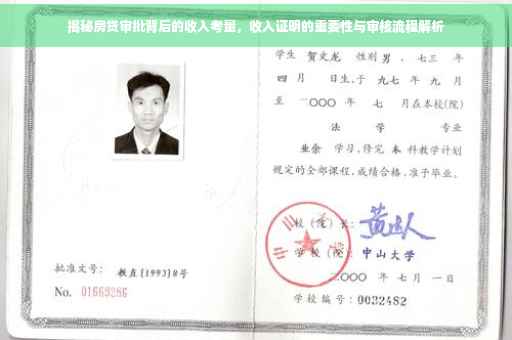 揭秘房贷审批背后的收入考量，收入证明的重要性与审核流程解析
学生 贺文龙 性别 男 、七三 年
四 月 日生,于 九七 年 九 月
至 二〇〇〇 年 七 月在本校(院)
法 学 专业
业余 学习,修完 本 科教学计划
规定的全部课程,成绩合格,准予毕业。
校 (院) 长:
学 校 (院): 中山大学
二〇〇〇 年 七 月 一 日
学校编号: 0032482
批准文号: 教直[1993]8号
No. 01669286